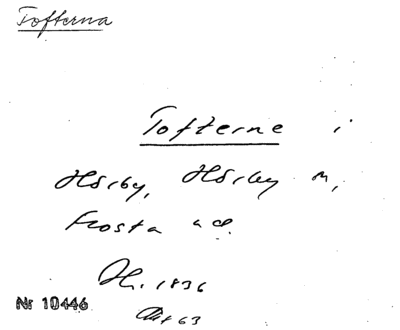 Tofterna
Tofterne i
Hörby, Hörby sn,
Frosta hd.
H. 1836
Nr 10446
63